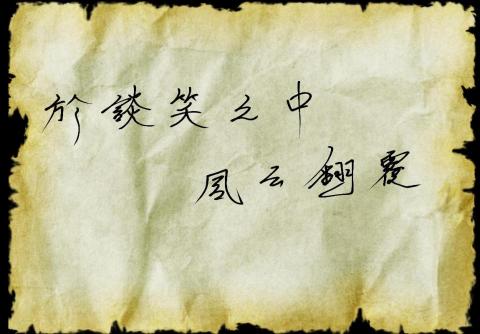 於談笑之中
風云翻覆